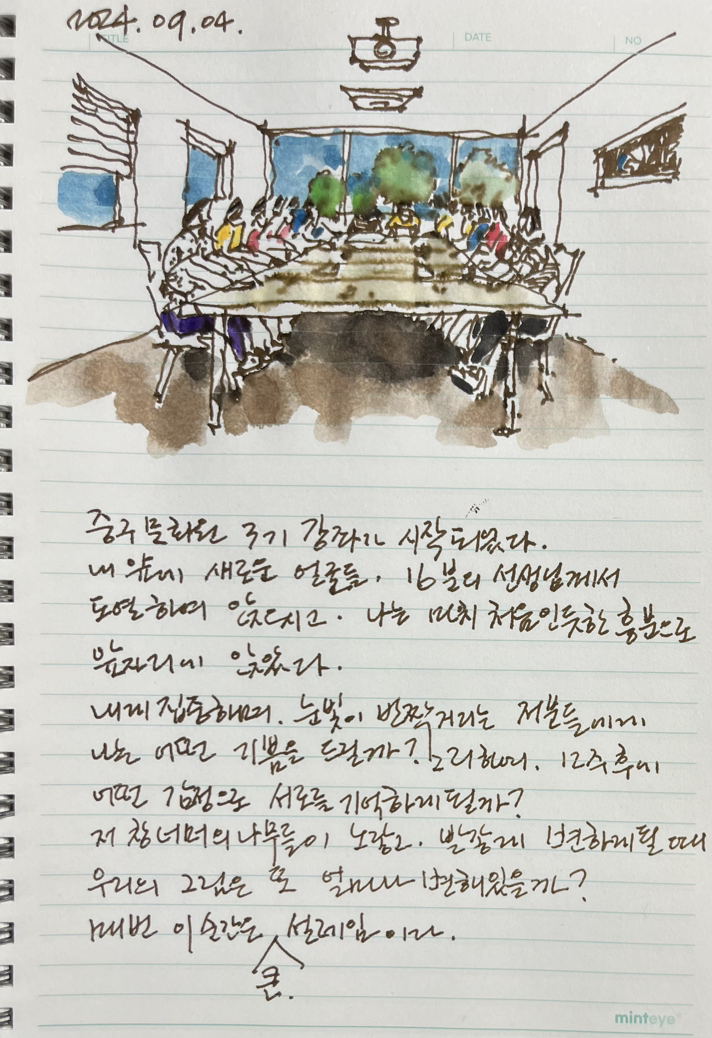 2024. 09. 04.
TITLE
DATE
NO
중구문화원 3기 강좌가 시작되었다.
내 앞에 새로운 얼굴들. 16분의 선생님께서
도열하여 앉으시고. 나는 마치 처음인듯한 흥분으로
앞자리에 앉았다.
내게 집중하며. 눈빛이 반짝거리는 저분들에게
나는 어떤 기쁨을 드릴까? 그리하여. 12주 후에
어떤 감정으로 서로를 기억하게 될까?
저 창 너머의 나무들이 노랗고. 빨갛게 변하게 될 때
우리의 그림은 또 얼마나 변해있을까?
매번 이 순간은 큰. 설레임이다.
minteye